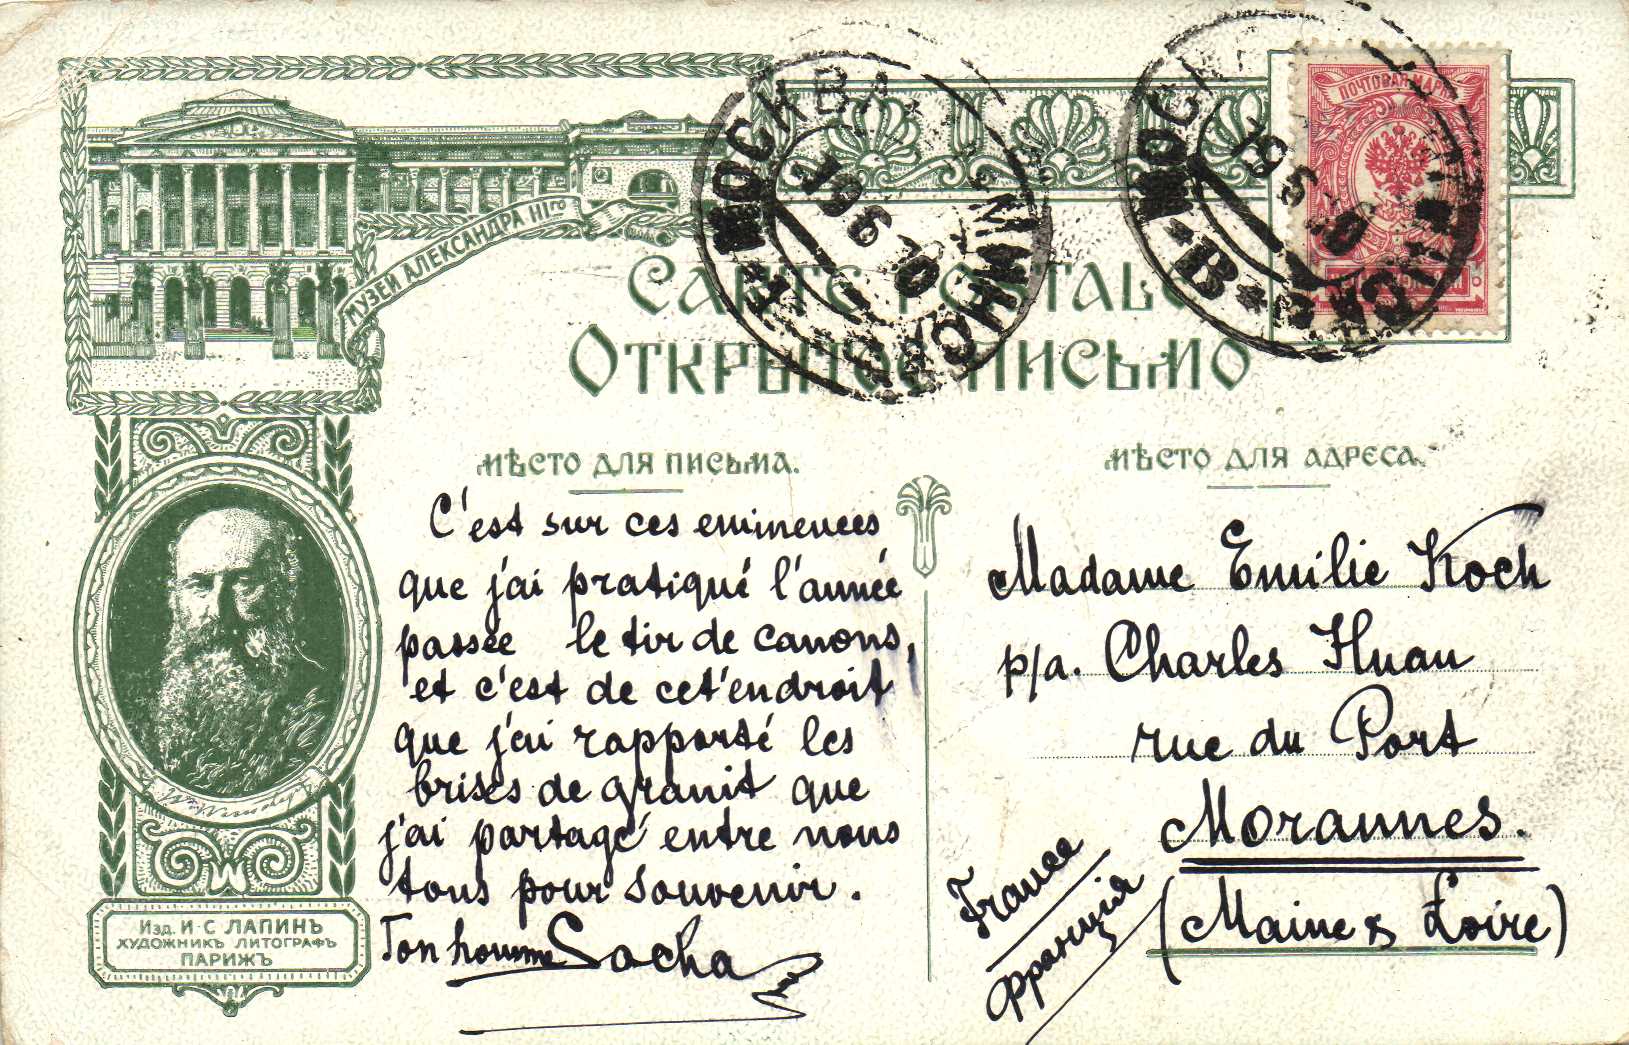 МУЗЕЙ АЛЕКСАНДРА IIIго
CARTE POSTALE
ОТКРЫТОЕ ПИСЬМО
ПОЧТОВАЯ МАРКА
МОСКВА
МОСКВА
мѣсто для письма.
мѣсто для адреса.
C'est sur ces eminences
que j'ai pratiqué l'année
passée le tir de canons,
et c'est de cet'endroit
que j'ai rapporté les
brises de granit que
j'ai partagé entre nous
tous pour souvenir.
Ton homme Sacha
Madame Emilie Koch
p/a. Charles Huau
rue du Port
Morannes.
(Maine & Loire)
France
Франція
Изд. И·С ЛАПИНЪ
ХУДОЖНИКЪ ЛИТОГРАФЪ
ПАРИЖЪ